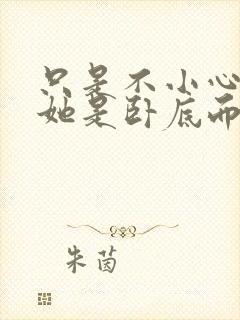 只是不小心
她是卧底而
朱茵